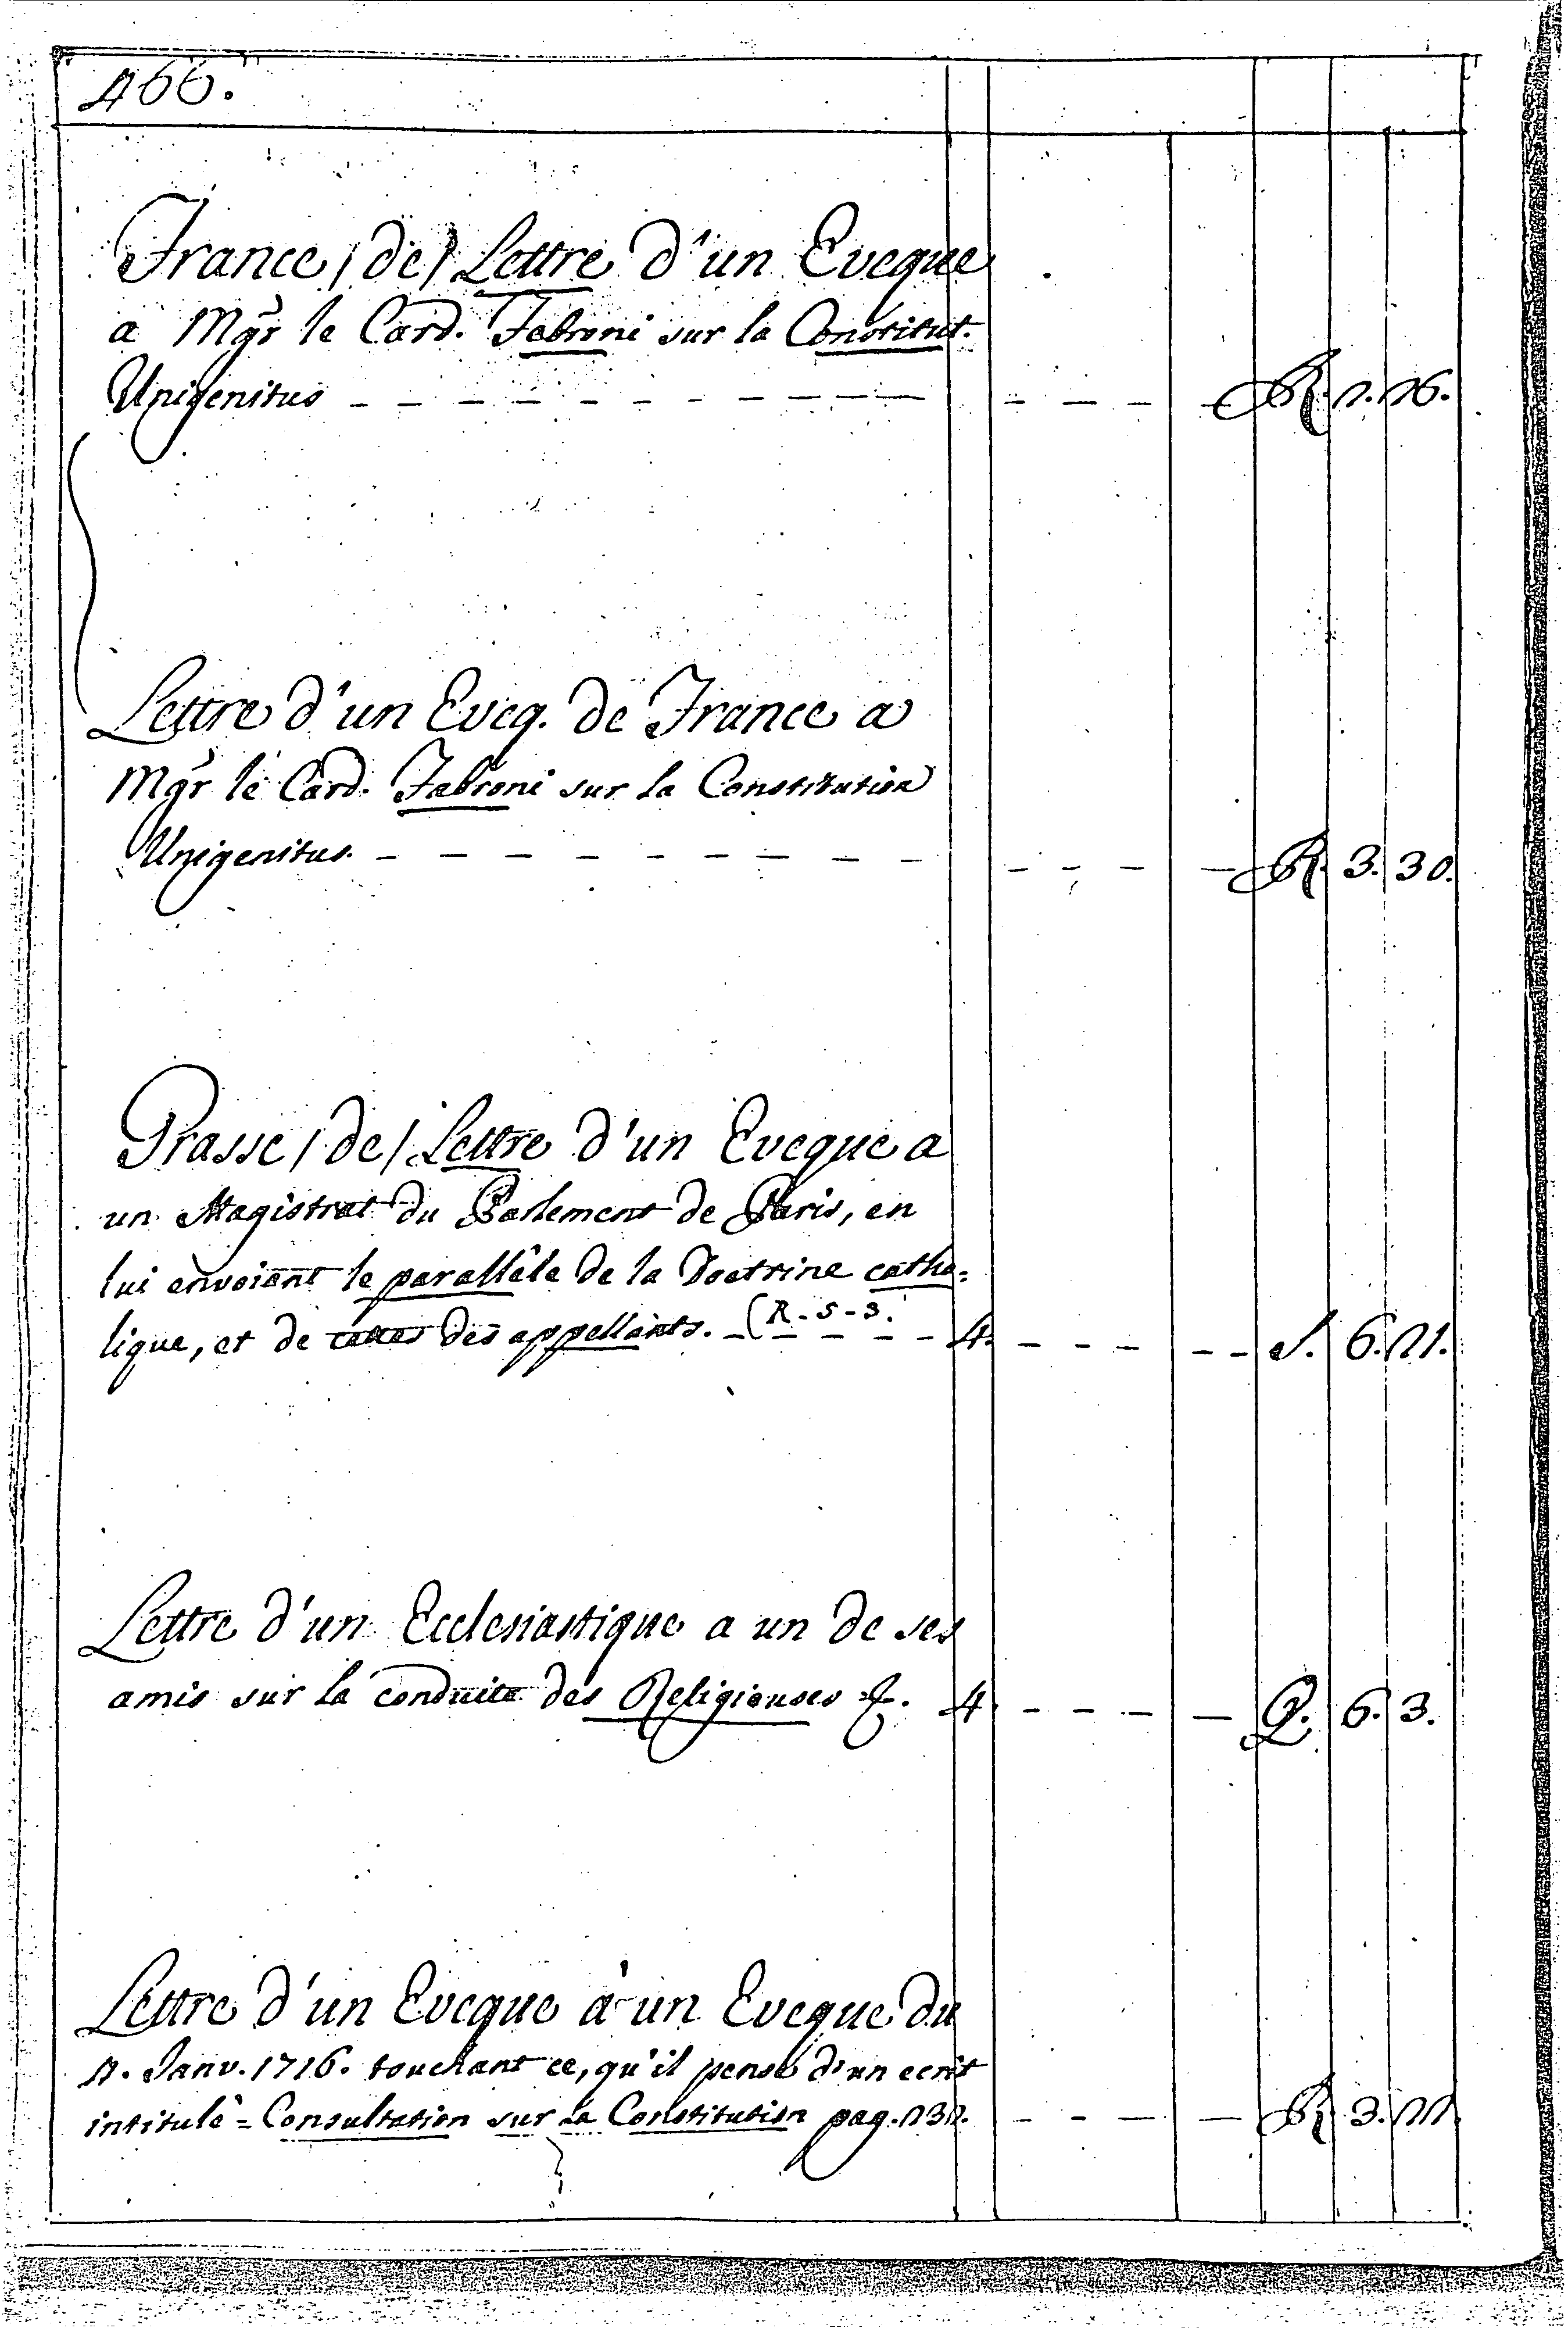 466.
France / de / Lettre d'un Eveque
a Mgr le Card. Fabroni sur la Constitut.
Unigenitus - - - - - - - - - - - - - - R.
Lettre d'un Eveq. de France a
Mgr le Card. Fabroni sur la Constitution
Unigenitus. - - - - - - - - - - - - - R. 3. 30.
Grasse / de / Lettre d'un Eveque a
un Magistrat du Parlement de Paris, en
lui envoiant le parallêle de la Doctrine catho=
lique, et de celles des appellants. - (R - 5 - 3. - - - 4. - - - - - S. 6. 21.
Lettre d'un Ecclesiastique a un de ses
amis sur la conduite des Religieuses &. 4. - - - - Q. 6. 3.
Lettre d'un Eveque à un Eveque du
Janv. 1716. touchant ce, qu'il pense d'un ecrit
intitulé = Consultation sur la Constitution pag. - - - - R. 3.